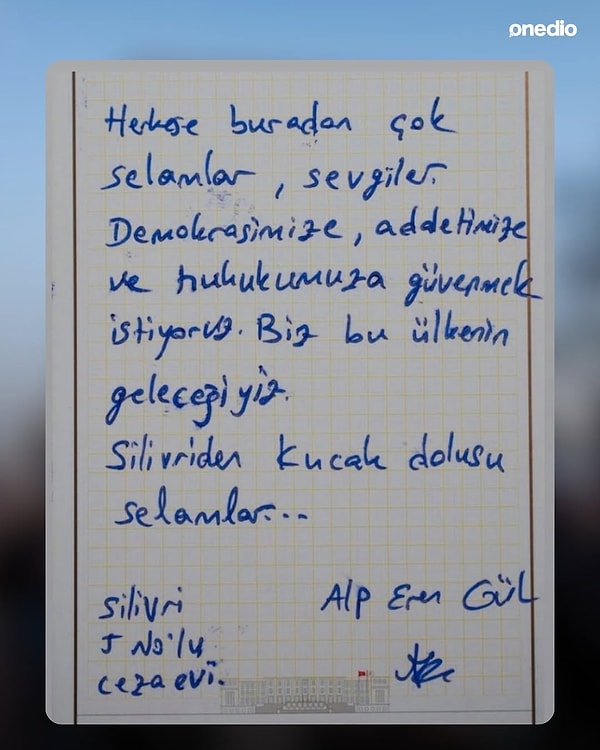 onedio
Herkese buradan çok
selamlar, sevgiler.
Demokrasimize, addetimize
ve hukukumuza güvenmek
istiyoruz. Biz bu ülkenin
geleceğiyiz.
Silivriden kucak dolusu
selamlar...
Silivri
Alp Eren GÜL
5 No'lu
cezaevi.